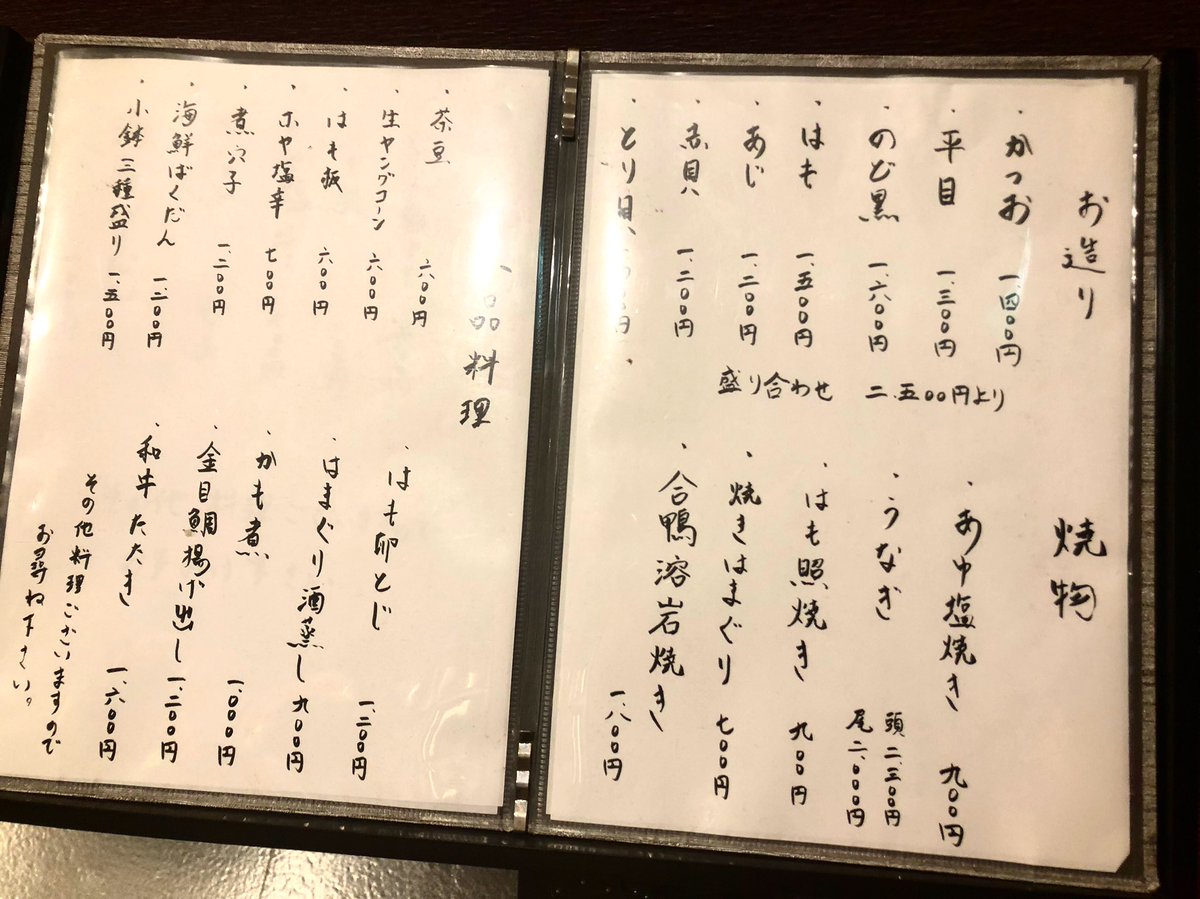 お造り
・かつお 一、四〇〇円
・平目 一、三〇〇円
・のど黒 一、六〇〇円
・はも 一、五〇〇円
・あじ 一、二〇〇円
・赤貝 一、二〇〇円
・とり貝
盛り合わせ 二、五〇〇円より
焼物
・あゆ塩焼き 九〇〇円
・うなぎ 頭 二、三〇〇円
尾 二、〇〇〇円
・はも照焼き 九〇〇円
・焼きはまぐり 七〇〇円
・合鴨溶岩焼き 一、八〇〇円
一品料理
・茶豆 六〇〇円
・生ヤングコーン 六〇〇円
・はも板 六〇〇円
・ホヤ塩辛 七〇〇円
・煮穴子 一、二〇〇円
・海鮮ばくだん 一、二〇〇円
・小鉢三種盛り 一、五〇〇円
・はも卵とじ 一、二〇〇円
・はまぐり酒蒸し 九〇〇円
・かも煮 一、〇〇〇円
・金目鯛揚げ出し 一、二〇〇円
・和牛たたき 一、六〇〇円
その他料理ございますので
お尋ね下さい。